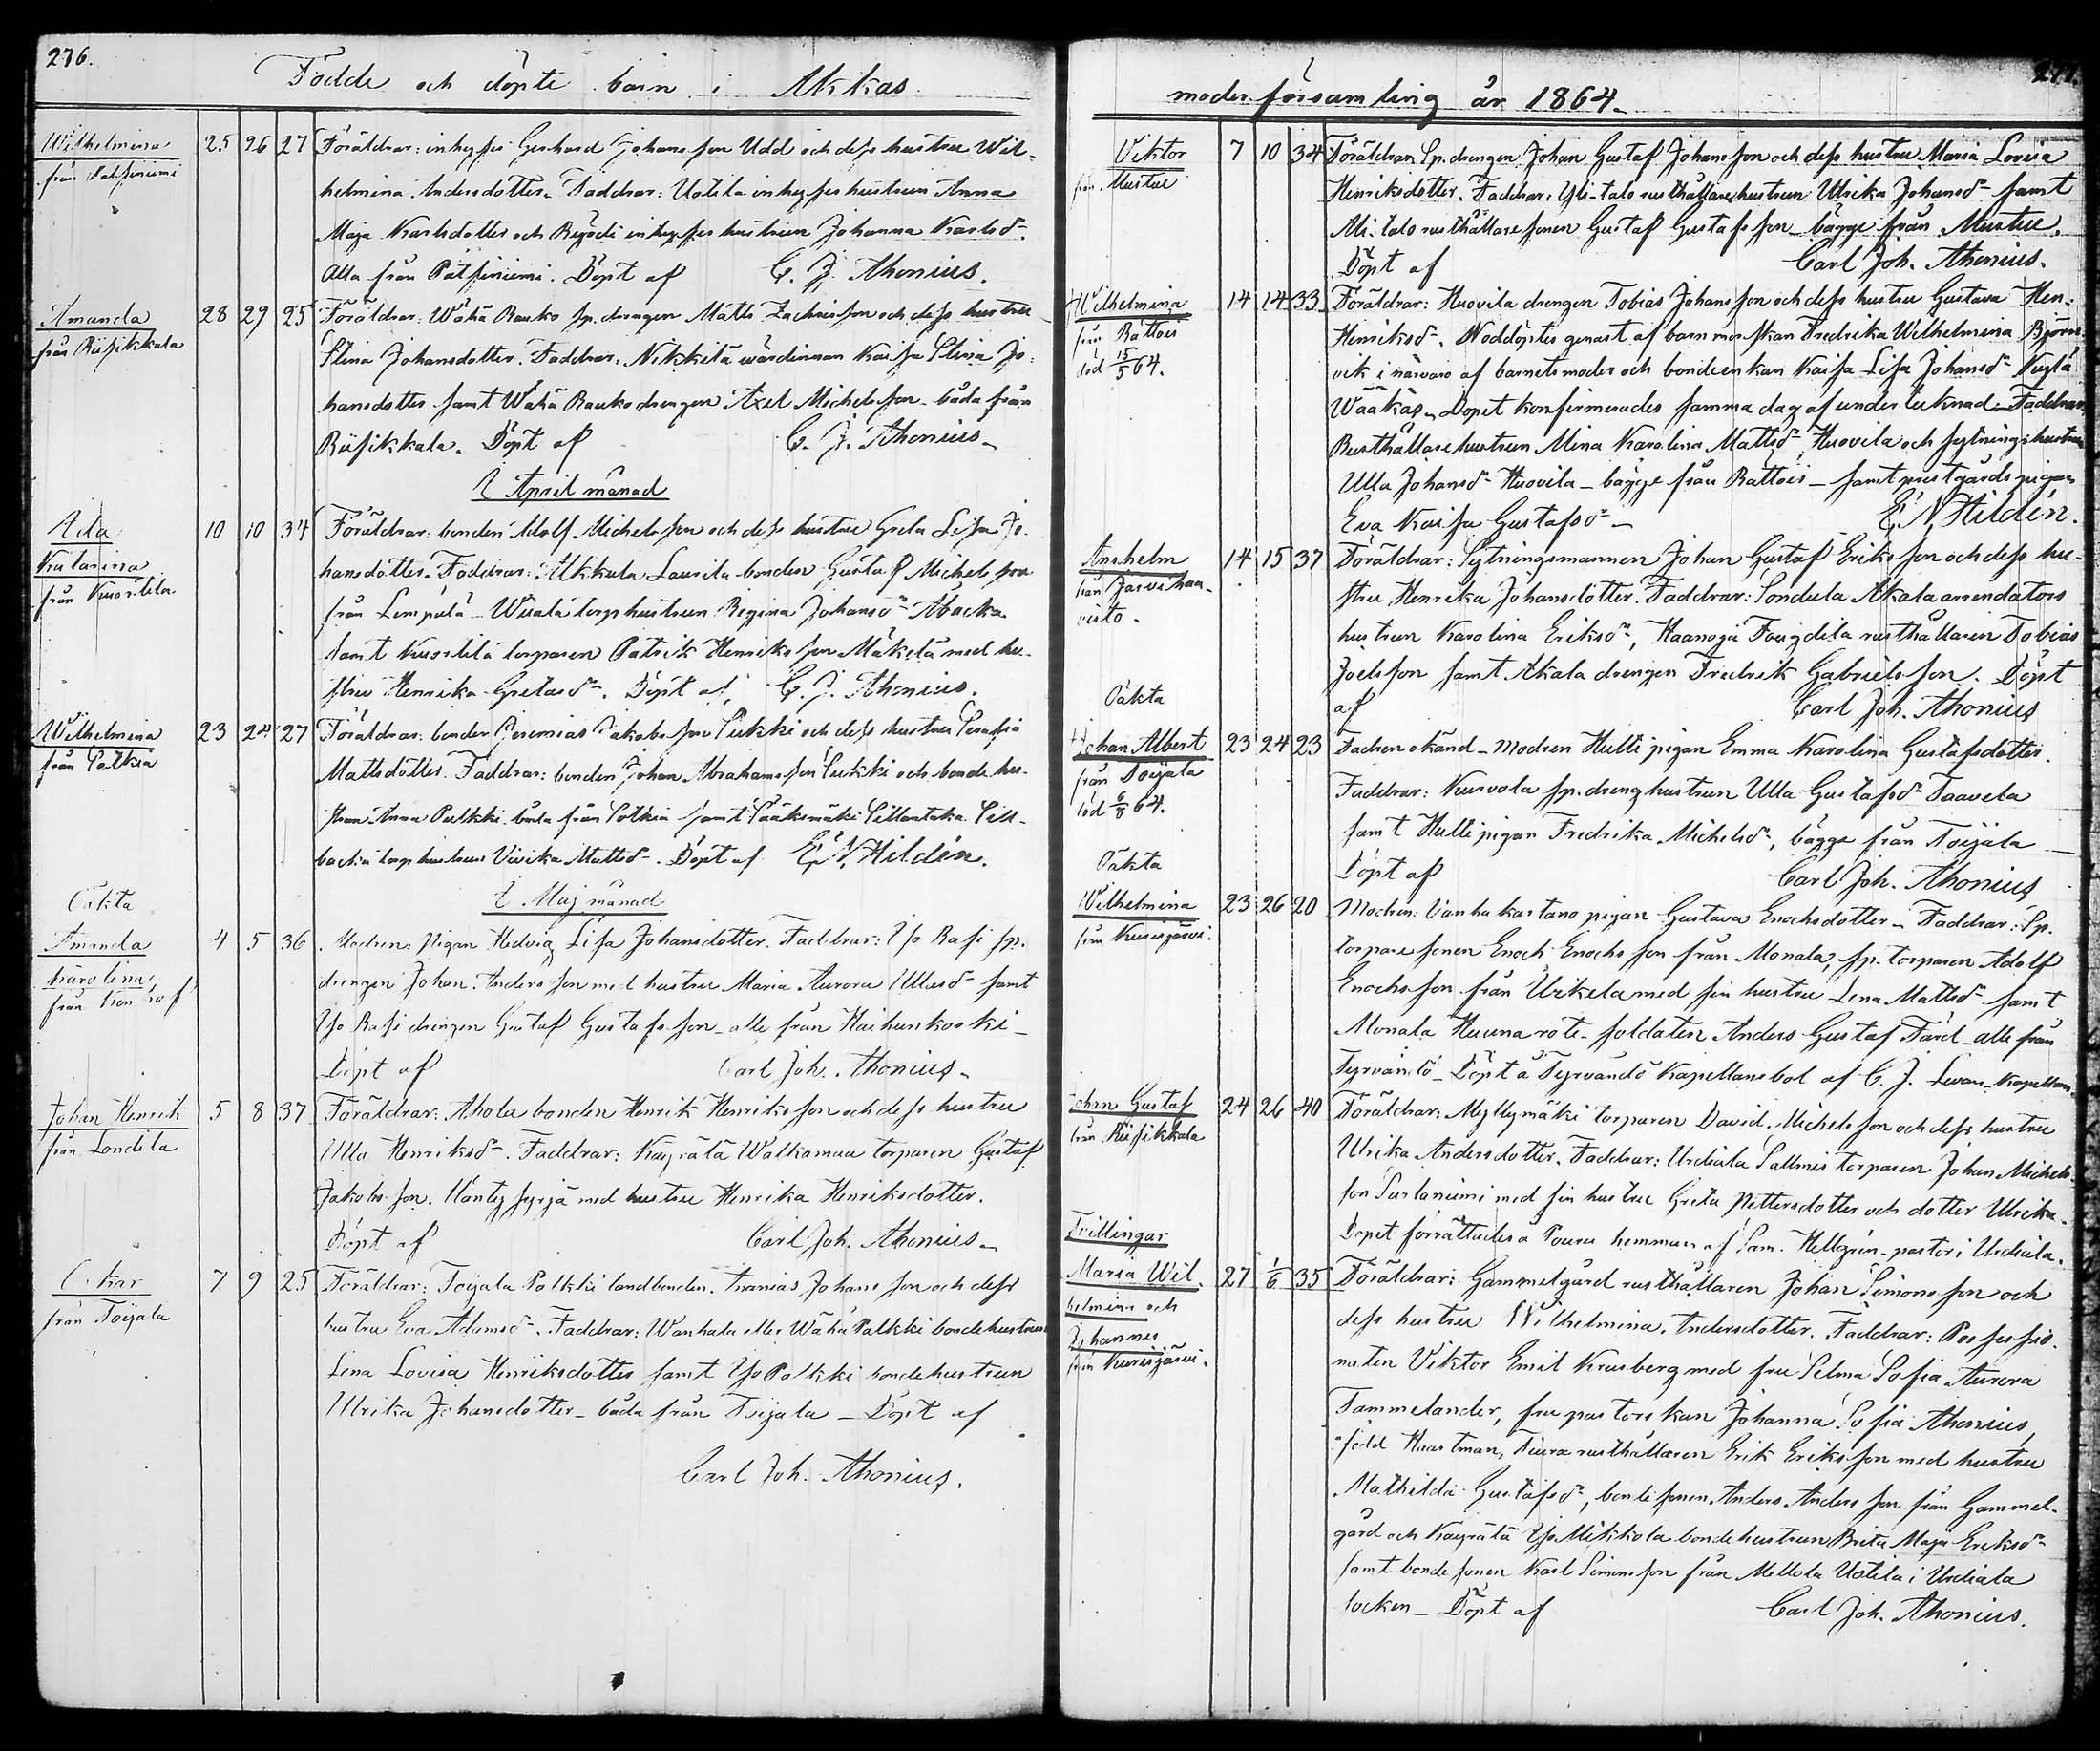 276.
Födde och döpte barn i Akkas
Wilhelmina 25 26 27 Föräldrar: inhyses Gerhard Johansson Udd och dess hustru Wil-
från Palsiniemi
helmina Andersdotter. Faddrar: Uotila inhyseshustrun Anna
Maja Karlsdotter och inhyseshustrun Johanna Karlsdr.
Alla från Palsiniemi. Döpt af C. J. Ahonius.
Amanda 28 29 25 Föräldrar: Wähä Rauko sp. drengen Matts Zachrisson och dess hustru
från Riisikkala
Stina Johansdotter. Faddrar: Nikkilä värdinnan Kaisa Stina Jo-
hansdotter samt Wähä Rauko drengen Axel Michelsson båda från
Riisikkala. Döpt af C. J. Ahonius.
I April månad
Ida 10 10 34 Föräldrar: bonden Adolf Michelsson och dess hustru Greta Lisa Jo-
Katarina
från
hansdotter. Faddrar: Alkkula Laurila bonden Gustaf Michelsson
från Lempälä Wiiala torps hustrun Regina Johansdr Abacka
samt torparen Patrik Henriksson Mäkelä med hu-
stru Henrika Gretasdr. Döpt af C. J. Ahonius.
Wilhelmina 23 24 27 Föräldrar: bonden Jeremias Jakobsson Pukki och dess hustru Serafia
från Sotkia
Mattsdotter. Faddrar: bonden Johan Abrahamsson Pukki och bonde hu-
strun Anna båda från Sotkia samt Sääksmäki
backa torp hustrun Vivika Mattsdr. Döpt af E. N. Hildén.
I Maj månad
Oäkta
Amanda 4 5 36 Modren: pigan Hedvig Lisa Johansdotter. Faddrar: Iso Rasi sp.
Karolina
från
drengen Johan Andersson med hustru Maria Aurora Ullasdr samt
Iso Rasi drengen Gustaf Gustafsson alla från Haihunkoski
Döpt af Carl Joh. Ahonius.
Johan Henrik 5 8 37 Föräldrar: Ahola bonden Henrik Henriksson och dess hustru
från Sondila
Ulla Henriksdr. Faddrar: Kayrälä Walkamaa torparen Gustaf
Jakobsson med hustru Henrika Henriksdotter.
Döpt af Carl Joh. Ahonius.
Oskar 7 9 25 Föräldrar: Toijala Palkki landbonden Ananias Johansson och dess
från Toijala
hustru Eva Adamsdr. Faddrar: Wanhala eller Wähä Palkki bondehustrun
Lina Lovisa Henriksdotter samt Iso Palkki bondehustrun
Ulrika Johansdotter båda från Toijala Döpt af
Carl Joh. Ahonius.
277.
moderförsamling år 1864.
Viktor 7 10 34 Föräldrar: Sp. drengen Johan Gustaf Johansson och dess hustru Maria Lovisa
från Mustue
Henriksdotter. Faddrar: Yli-talo rusthållarehustrun Ulrika Johansdr samt
Ali-talo rusthållaresonen Gustaf Gustafsson bägge från Mustue.
Döpt af Carl Joh. Ahonius.
Wilhelmina 14 14 33 Föräldrar: Huovila drengen Tobias Johansson och dess hustru Gustava Hen-
från Rattois
död 15/5 64.
Henriksdr. Nöddöptes genast af barnmorskan Fredrika Wilhelmina Björn-
vik i närvaro af barnets moder och bondeenkan Kaisa Lisa Johansdr
Dopet konfirmerades samma dag af undertecknad. Faddrar
Rusthållarehustrun Mina Karolina Mattsdr Huovila och sytningshustrun
Ulla Johansdr Huovila bägge från Rattois samt prestgårdspigan
Eva Kaisa Gustafsdr E. N. Hildén.
Anshelm 14 15 37 Föräldrar: Sytningsmannen Johan Gustaf Eriksson och dess hu-
från Jarvehaa-
visto.
stru Henrika Johansdotter. Faddrar: Sondula Akala arrendators
hustrun Karolina Eriksdr, Haanoja Fougdila rusthållaren Tobias
Joelsson samt Akala drengen Fredrik Gabrielsson. Döpt
af Carl Joh. Ahonius
Oäkta
Johan Albert 23 24 23 Fadren okänd Modren Hulli pigan Emma Karolina Gustafsdotter.
från Toijala
död 6/8 64.
Faddrar: Kurvola sp. dreng hustrun Ulla Gustafsdr Taavela
samt Hulli pigan Fredrika Michelsdr, bägge från Toijala
Döpt af Carl Joh. Ahonius
Oäkta
Wilhelmina 23 26 20 Modren: Vanhakartano pigan Gustava Enochsdotter Faddrar: Sp.
från Kurisjärvi.
torpare sonen Enoch Enochsson från Monala, sp. torparen Adolf
Enochsson från Urkela med sin hustru Lena Mattsdr samt
Monala Huuna rote soldaten Anders Gustaf Färd alla från
Tyrväntö Döpt å Tyrväntö Kapellansbol af C. J. Kapellan.
Johan Gustaf 24 26 40 Föräldrar: Myllymäki torparen David Michelsson och dess hustru
från Riisikkala
Ulrika Andersdotter. Faddrar: Urdiala Sallmis torparen Johan Michels-
son med sin hustru Greta Pettersdotter och dotter Ulrika.
Dopet förrättades å Pouru hemman af Sam. Hellgrén pastor i Urdiala.
Tvillingar
Maria Wil- 27 1/6 35 Föräldrar: Gammelgård rusthållaren Johan Simonsson och
helmina och
Johannes
från Kurisjärvi.
dess hustru Wilhelmina Andersdotter. Faddrar: Possessio-
naten Viktor Emil Krusberg med fru Selma Sofia Aurora
Tammelander, fru pastorskan Johanna Sofia Ahonius,
född Haartman, Tiura rusthållaren Erik Eriksson med hustru
Mathilda Gustafsdr, bondesonen Anders Andersson från Gammel-
gård och Kayrälä Iso Mikkola bondehustrun Brita Maja Eriksdr
samt bonde sonen Karl Simonsson från Mellola Uotila i Urdiala
socken Döpt af Carl Joh. Ahonius.